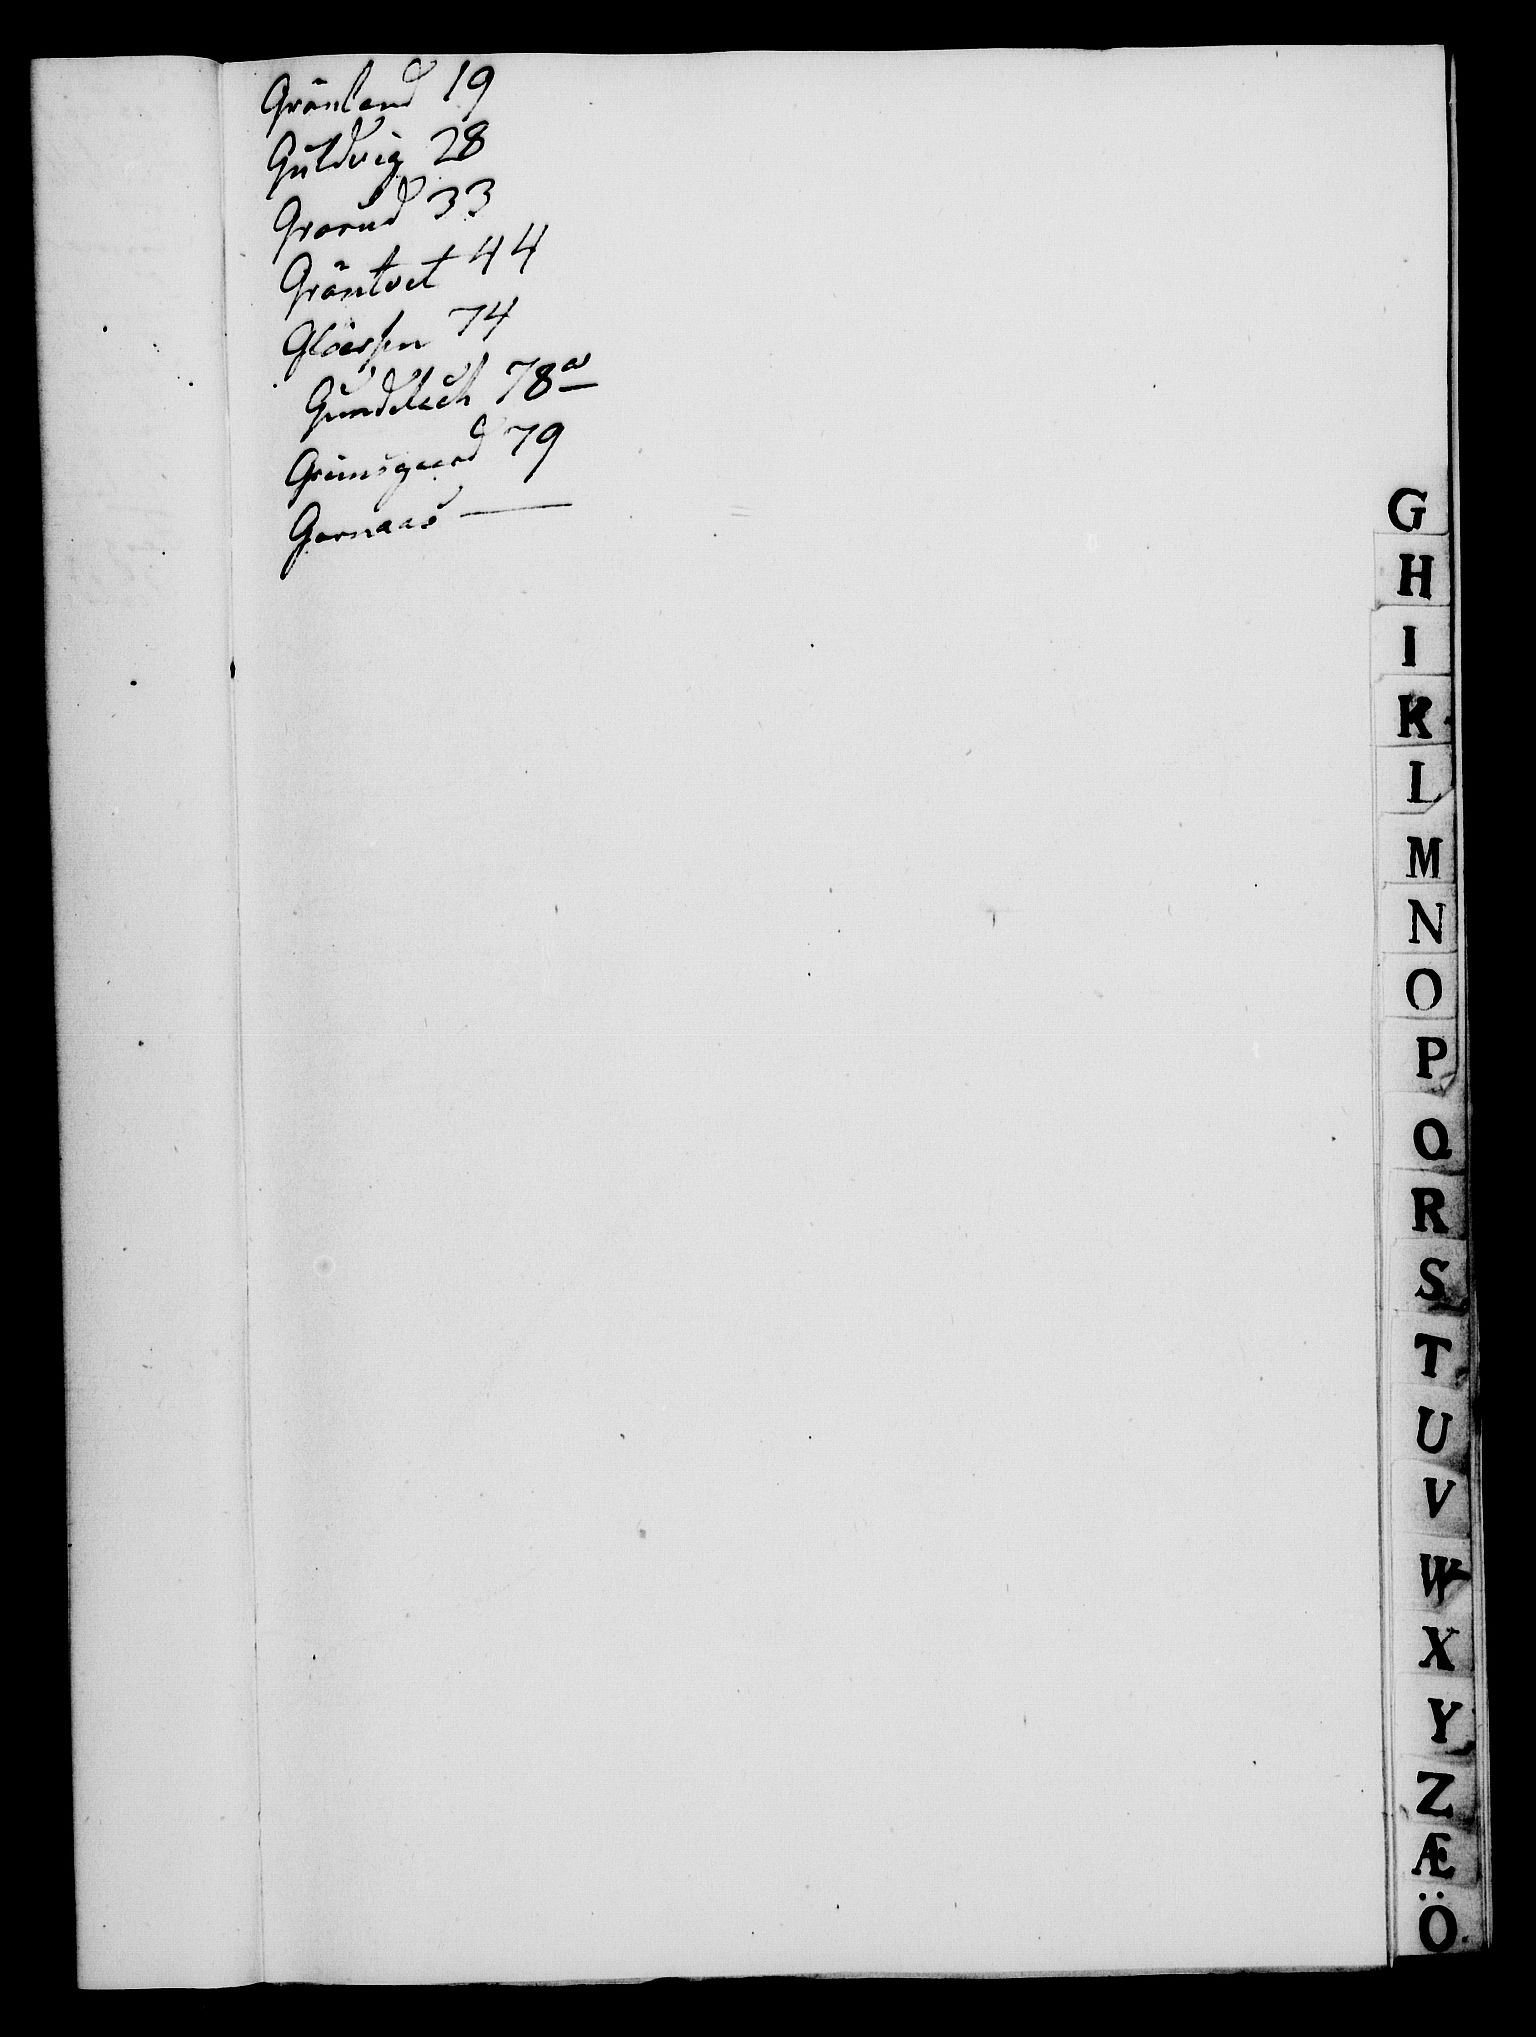 Grönland 19
Guldvig 28
Graarud 33
Gröntvet 44
Glöersen 74
Gundelach 78a
Grimsgaard 79
Garnaas —
G
H
I
K
L
M
N
O
P
Q
R
S
T
U
V
W
X
Y
Z
Æ
Ö